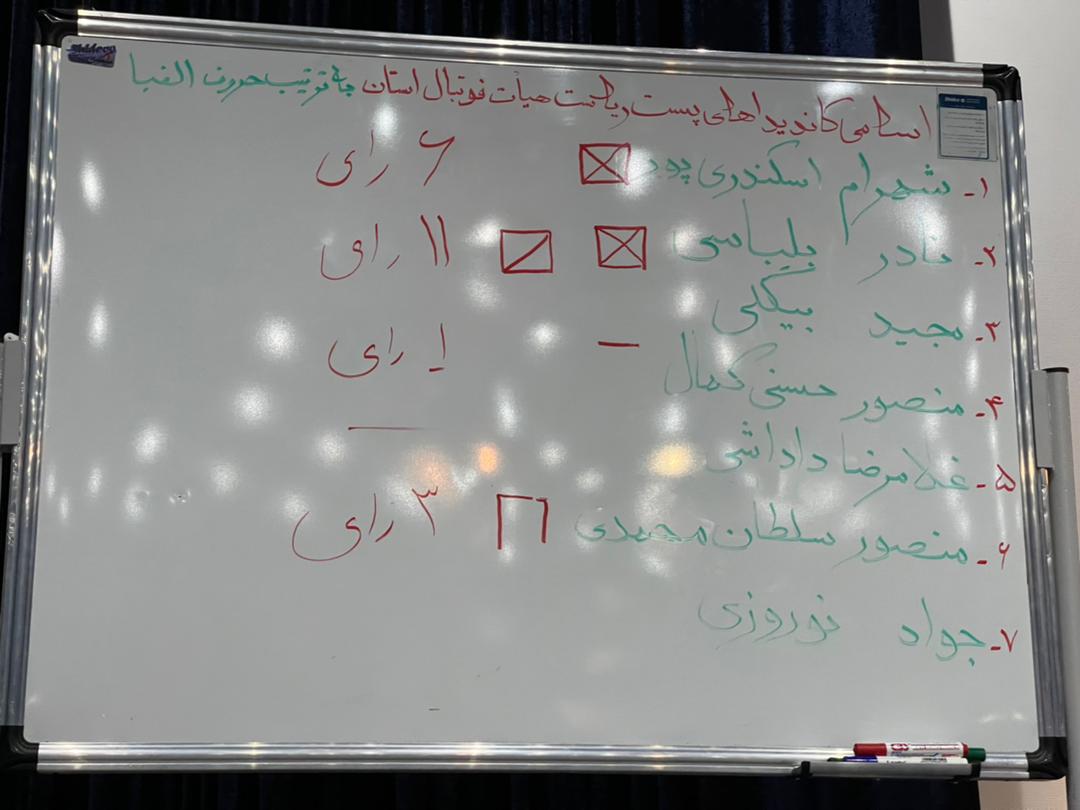 اسامی کاندیداهای پست ریاست هیات فوتبال استان به ترتیب حروف الفبا
۱- شهرام اسکندری پور ۶ رای
۲- نادر بلباسی ۱۱ رای
۳- مجید بیگلی ۱ رای
۴- منصور حسنی کمال
۵- غلامرضا داداشی
۶- منصور سلطان محمدی ۳ رای
۷- جواد نوروزی